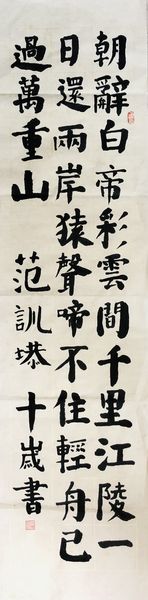 朝辭白帝彩雲間千里江陵一
日還兩岸猿聲啼不住輕舟已
過萬重山 范訓塨 十歲書